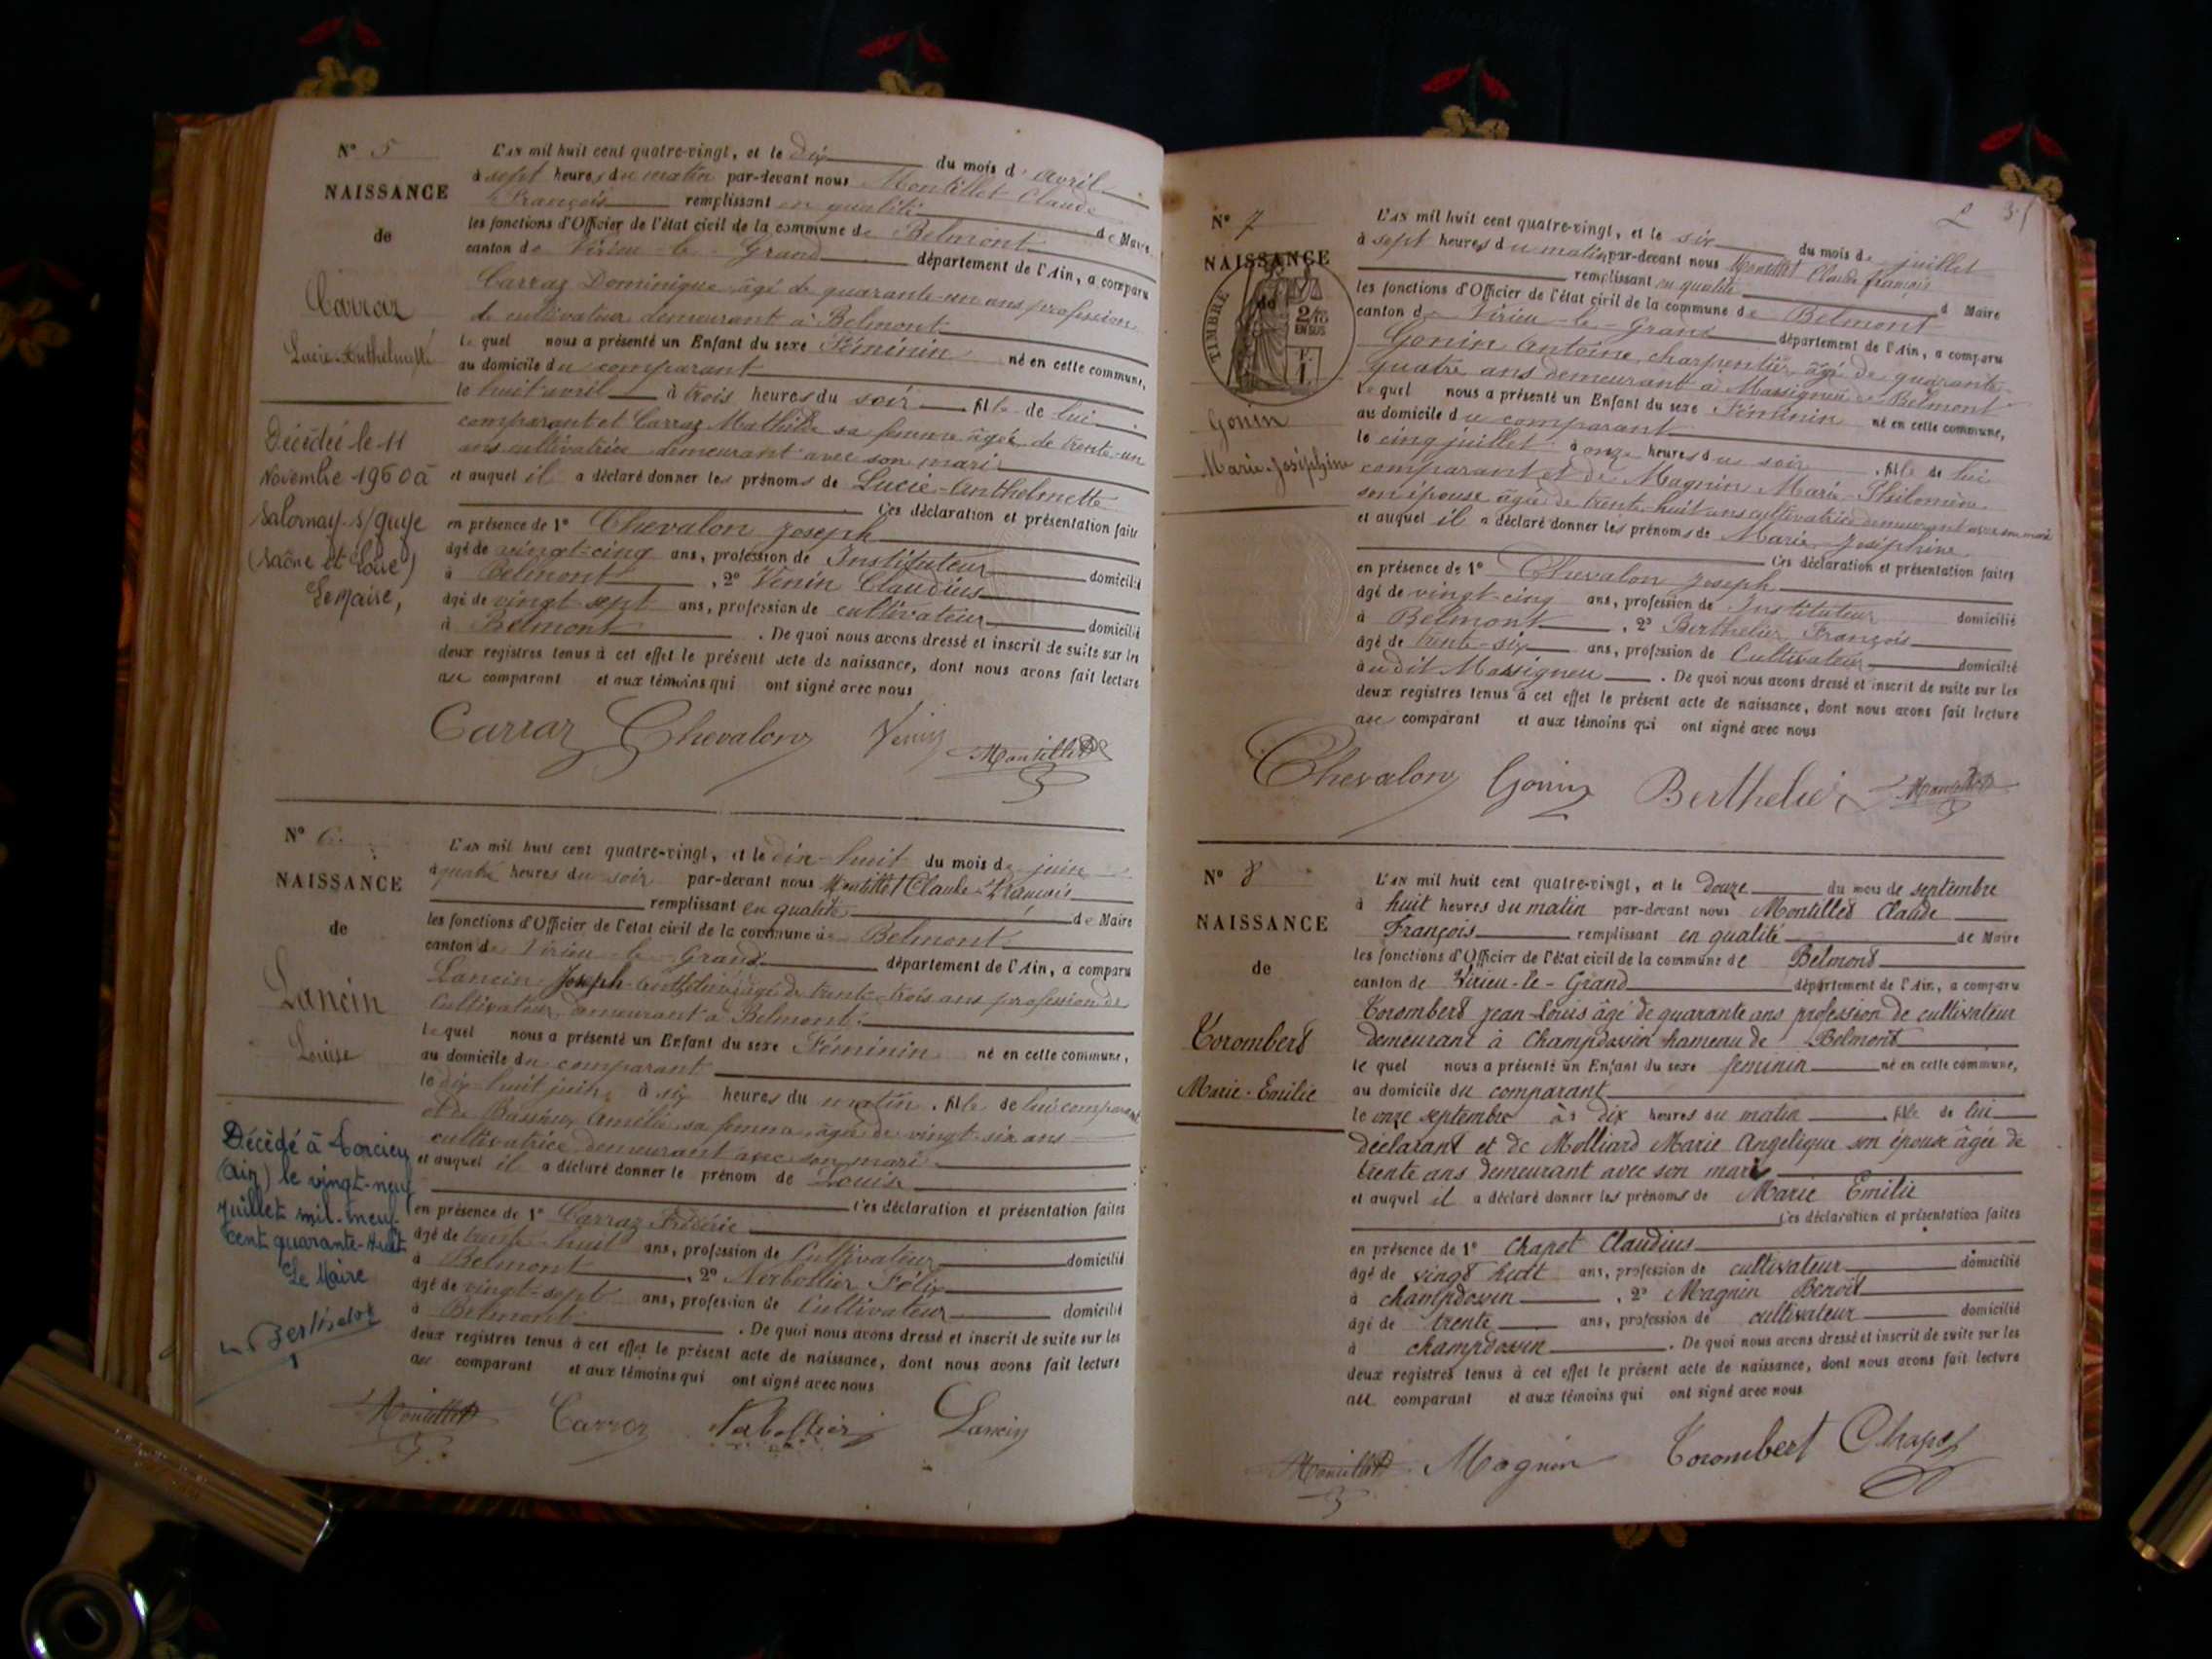 N° 5
NAISSANCE
de
Carraz
Lucie-Anthelmette
Décédée le 11
Novembre 1960 à
Salornay-s/Guye
(Saône et Loire)
Le Maire,
L'AN mil huit cent quatre-vingt, et le dix du mois d'avril
à sept heures du matin par-devant nous Montillet Claude
François remplissant en qualité de Maire
les fonctions d'Officier de l'état civil de la commune de Belmont
canton de Virieu-le-Grand département de l'Ain, a comparu
Carraz Dominique âgé de quarante-un ans profession
de cultivateur demeurant à Belmont
lequel nous a présenté un Enfant du sexe Féminin né en cette commune,
au domicile du comparant
le huit avril à trois heures du soir fille de lui
comparant et Carraz Mathilde sa femme âgée de trente-un
ans cultivatrice demeurant avec son mari
et auquel il a déclaré donner les prénoms de Lucie-Anthelmette
Ces déclaration et présentation faites
en présence de 1° Chevalon Joseph
âgé de vingt-cinq ans, profession de Instituteur domicilié
à Belmont, 2° Venin Claudius
âgé de vingt-sept ans, profession de cultivateur domicilié
à Belmont. De quoi nous avons dressé et inscrit de suite sur les
deux registres tenus à cet effet le présent acte de naissance, dont nous avons fait lecture
au comparant et aux témoins qui ont signé avec nous
Carraz Chevalon Venin Montillet
N° 6
NAISSANCE
de
Lancin
Louise
Décédé à Torcieu
(Ain) le vingt-neuf
Juillet mil-neuf-
cent quarante-huit
Le Maire
Berthelot
L'AN mil huit cent quatre-vingt, et le dix-huit du mois de juin
à quatre heures du soir par-devant nous Montillet Claude François
remplissant en qualité de Maire
les fonctions d'Officier de l'état civil de la commune de Belmont
canton de Virieu-le-Grand département de l'Ain, a comparu
Lancin Joseph âgé de trente-trois ans profession de
Cultivateur, demeurant à Belmont
lequel nous a présenté un Enfant du sexe Féminin né en cette commune,
au domicile du comparant
le dix-huit juin, à six heures du matin. fille de lui comparant
et de Amélie sa femme, âgée de vingt-six ans
cultivatrice demeurant avec son mari
et auquel il a déclaré donner le prénom de Louise
Ces déclaration et présentation faites
en présence de 1° Carraz Frédéric
âgé de trente-huit ans, profession de Cultivateur domicilié
à Belmont, 2° Nerbollier Félix
âgé de vingt-sept ans, profession de Cultivateur domicilié
à Belmont. De quoi nous avons dressé et inscrit de suite sur les
deux registres tenus à cet effet le présent acte de naissance, dont nous avons fait lecture
au comparant et aux témoins qui ont signé avec nous
Montillet Carraz Lancin
N° 7
NAISSANCE
de
TIMBRE
2/10
EN SUS
Gonin
Marie-Joséphine
L'AN mil huit cent quatre-vingt, et le six du mois de juillet
à sept heures du matin par-devant nous Montillet Claude François
remplissant en qualité d Maire
les fonctions d'Officier de l'état civil de la commune de Belmont
canton de Virieu-le-Grand département de l'Ain, a comparu
Gonin Antoine, charpentier, âgé de quarante-
quatre ans demeurant à Massignieu Belmont
lequel nous a présenté un Enfant du sexe Féminin né en cette commune,
au domicile du comparant
le cinq juillet à onze heures du soir. fille de lui
comparant et de Magnin Marie-Philomène
son épouse âgée de trente-huit ans cultivatrice demeurant avec son mari
et auquel il a déclaré donner les prénoms de Marie-Joséphine
Ces déclaration et présentation faites
en présence de 1° Chevalon Joseph
âgé de vingt-cinq ans, profession de Instituteur domicilié
à Belmont, 2° Berthelier François
âgé de trente-six ans, profession de Cultivateur domicilié
à udit Massignieu. De quoi nous avons dressé et inscrit de suite sur les
deux registres tenus à cet effet le présent acte de naissance, dont nous avons fait lecture
au comparant et aux témoins qui ont signé avec nous
Chevalon Gonin Berthelier Montillet
N° 8
NAISSANCE
de
Corombert
Marie-Emilie
L'AN mil huit cent quatre-vingt, et le douze du mois de septembre
à huit heures du matin par-devant nous Montillet Claude
François remplissant en qualité de Maire
les fonctions d'Officier de l'état civil de la commune de Belmont
canton de Virieu-le-Grand département de l'Ain, a comparu
Corombert jean-Louis âgé de quarante ans profession de cultivateur
demeurant à Champdossin hameau de Belmont
lequel nous a présenté un Enfant du sexe feminin né en cette commune,
au domicile du comparant
le onze septembre à dix heures du matin. fille de lui
déclarant et de Molliard Marie Angelique son épouse âgée de
trente ans demeurant avec son mari
et auquel il a déclaré donner les prénoms de Marie Emilie
Ces déclaration et présentation faites
en présence de 1° Chapot Claudius
âgé de vingt huit ans, profession de cultivateur domicilié
à champdossin, 2° Magnin Benoît
âgé de trente ans, profession de cultivateur domicilié
à champdossin. De quoi nous avons dressé et inscrit de suite sur les
deux registres tenus à cet effet le présent acte de naissance, dont nous avons fait lecture
au comparant et aux témoins qui ont signé avec nous
Montillet Magnin Corombert Chapot